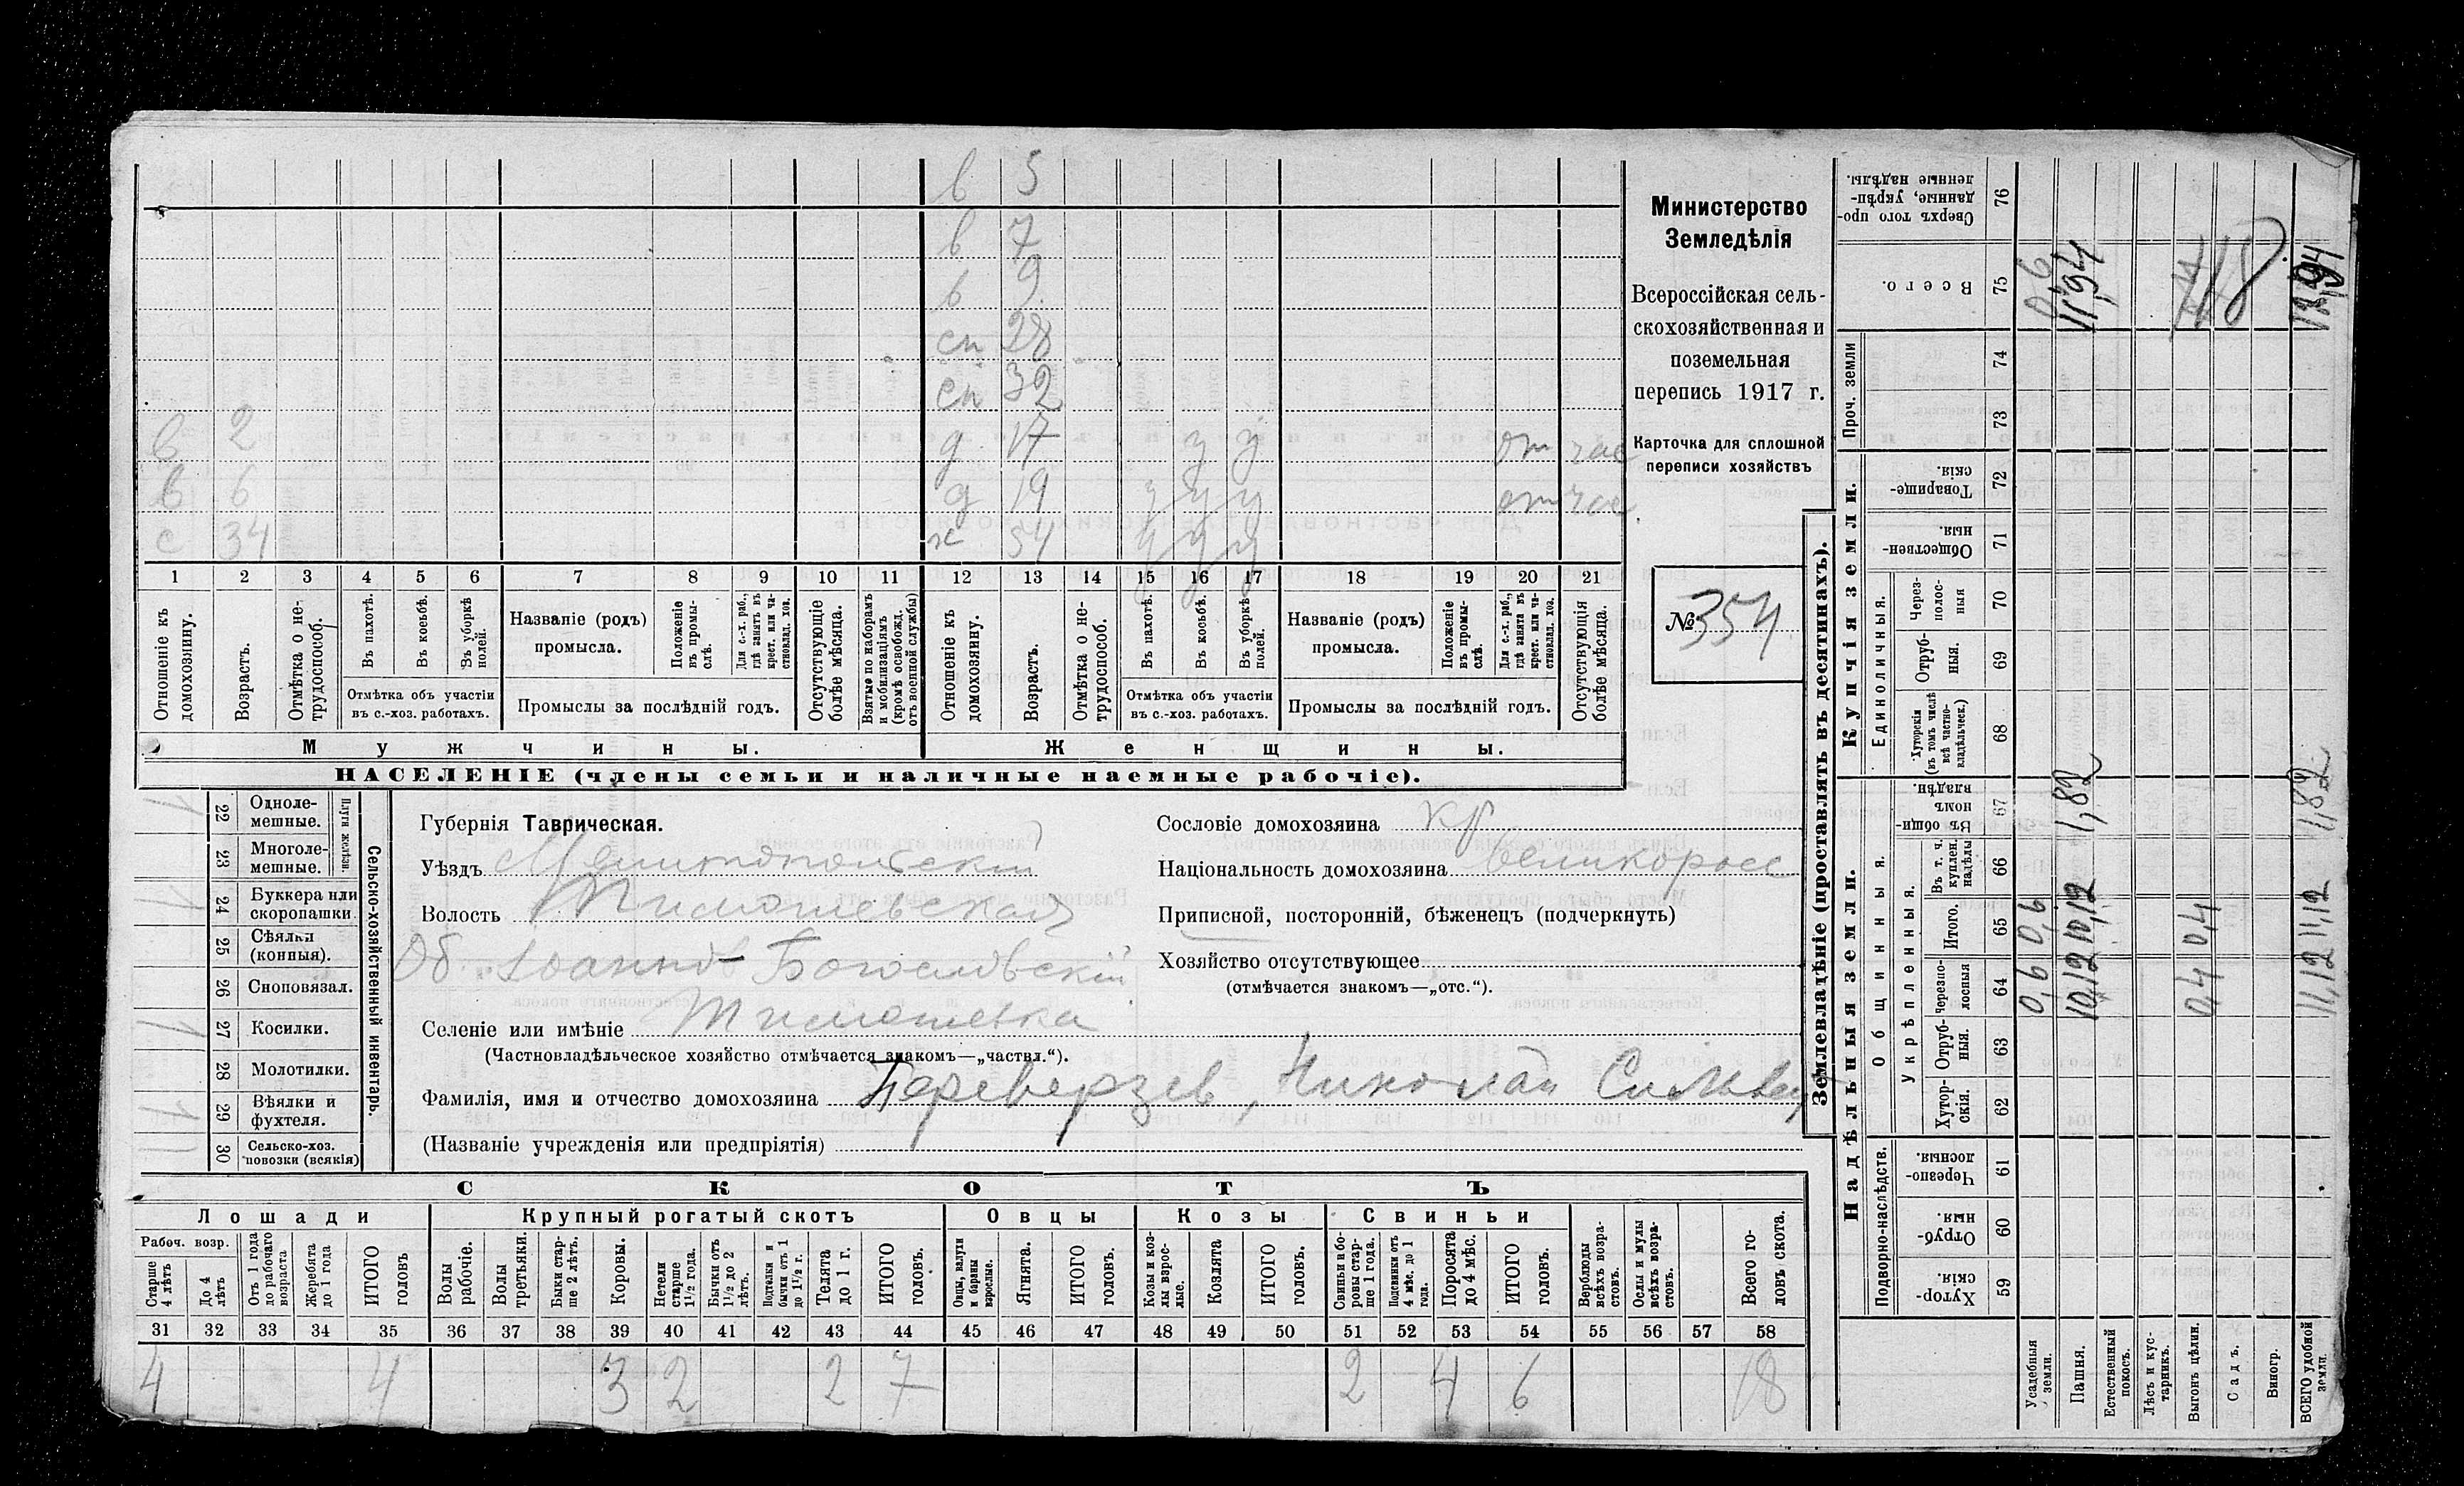 в 5
в 7
в 9
сп 28
сп 32
в 2 д 17 у у от час
в 6 д 19 у у у от час
с 34 ж 54 у у у
1 2 3 4 5 6 7 8 9 10 11 12 13 14 15 16 17 18 19 20 21
Отношеніе къ домохозяину.
Возрастъ.
Отмѣтка о не-трудоспособ.
Въ пахотѣ.
Въ косьбѣ.
Въ уборкѣ полей.
Отмѣтка объ участіи въ с.-хоз. работахъ.
Названіе (родъ) промысла.
Положеніе въ промы-слѣ.
Для с.-х. раб., гдѣ занятъ въ крест. или ча-стновлад. хоз.
Промыслы за послѣдній годъ.
Отсутствующіе болѣе мѣсяца.
Взятые по наборамъ и мобилизаціямъ (кромѣ освобожд. отъ военной службы)
Отношеніе къ домохозяину.
Возрастъ.
Отмѣтка о не-трудоспособ.
Въ пахотѣ.
Въ косьбѣ.
Въ уборкѣ полей.
Отмѣтка объ участіи въ с.-хоз. работахъ.
Названіе (родъ) промысла.
Положеніе въ промы-слѣ.
Для с.-х. раб., гдѣ занята въ крест. или ча-стновлад. хоз.
Промыслы за послѣдній годъ.
Отсутствующія болѣе мѣсяца.
Мужчины. Женщины.
НАСЕЛЕНІЕ (члены семьи и наличные наемные рабочіе).
Министерство
Земледѣлія
Всероссійская сель-
скохозяйственная и
поземельная
перепись 1917 г.
Карточка для сплошной
переписи хозяйствъ
№ 354
Сельско-хозяйственный инвентарь.
Плуги желѣзн.
1 22 Одноле-мешные.
23 Многоле-мешные.
24 Буккера или скоропашки
25 Сѣялки (конныя).
26 Сноповязал.
1 27 Косилки.
28 Молотилки.
1 29 Вѣялки и фухтеля.
30 Сельско-хоз. повозки (всякія)
Губернія Таврическая.
Уѣздъ Мелитопольскій
Волость Тимошевская
Об. Іоанно-Богословскій
Селеніе или имѣніе Тимошевка
(Частновладѣльческое хозяйство отмѣчается знакомъ—„частвл.“).
Фамилія, имя и отчество домохозяина Переверзев, Николай Сильвес
(Названіе учрежденія или предпріятія)
Сословіе домохозяина кр
Національность домохозяина великоросс
Приписной, посторонній, бѣженецъ (подчеркнуть)
Хозяйство отсутствующее
(отмѣчается знакомъ—„отс.“).
СКОТЪ
Лошади Крупный рогатый скотъ Овцы Козы Свиньи
Рабоч. возр.
Старше 4 лѣтъ
До 4 лѣтъ
Отъ 1 года до рабочаго возраста
Жеребята до 1 года
ИТОГО головъ
Волы рабочіе.
Волы третьяки.
Быки стар-ше 2 лѣтъ.
Коровы.
Нетели старше 1½ года.
Бычки отъ 1½ до 2 лѣтъ.
Подтелки и бычки отъ 1 до 1½ г.
Телята до 1 г.
ИТОГО головъ.
Овцы, валухи и бараны взрослые.
Ягнята.
ИТОГО головъ.
Козы и коз-лы взрос-лые.
Козлята
ИТОГО головъ.
Свиньи и бо-ровы стар-ше 1 года.
Подсвинки отъ 4 мѣс. до 1 года.
Поросята до 4 мѣс.
ИТОГО головъ.
Верблюды всѣхъ возра-стовъ.
Ослы и мулы всѣхъ возра-стовъ.
Всего го-ловъ скота.
31 32 33 34 35 36 37 38 39 40 41 42 43 44 45 46 47 48 49 50 51 52 53 54 55 56 57 58
4 4 3 2 2 7 2 4 6 18
Землевладѣніе (проставлять въ десятинахъ).
Надѣльныя земли. Купчія земли.
Проч. земли
Подворно-наслѣдств.
Общинныя.
Укрѣпленныя.
Единоличныя.
59 Хутор-скія.
60 Отруб-ныя.
61 Черезпо-лосныя
62 Хутор-скія.
63 Отруб-ныя.
64 Черезпо-лосныя
65 Итого.
66 Въ т. ч. куплен. надѣлы
67 Въ общин-номъ владѣн.
68 Хуторскія (въ томъ числѣ всѣ частно-владѣльческ.)
69 Отруб-ныя.
70 Через-полос-ныя
71 Обществен-ныя.
72 Товарище-скія.
73
74
75 Всего.
76 Сверхъ того про-данные, укрѣп-ленные надѣлы.
Усадебныя земли. 0,6 0,6 0,6
Пашня. 10,12 10,12 1,82 11,94
Естественный покосъ.
Лѣсъ и кус-тарникъ.
Выгонъ цѣлин. 0,4 0,4
Садъ.
Виногр.
ВСЕГО удобной земли. 11,12 11,12 1,82